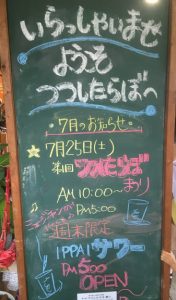 いらっしゃいませ
ようそ
つつしたらぼへ
・7月のおしらせ。
★7月25日(土)
第1回 つつしたらぼ
まつり
AM10:00〜
PM5:00
週末限定
IPPAIサワー
PM5:00
OPEN